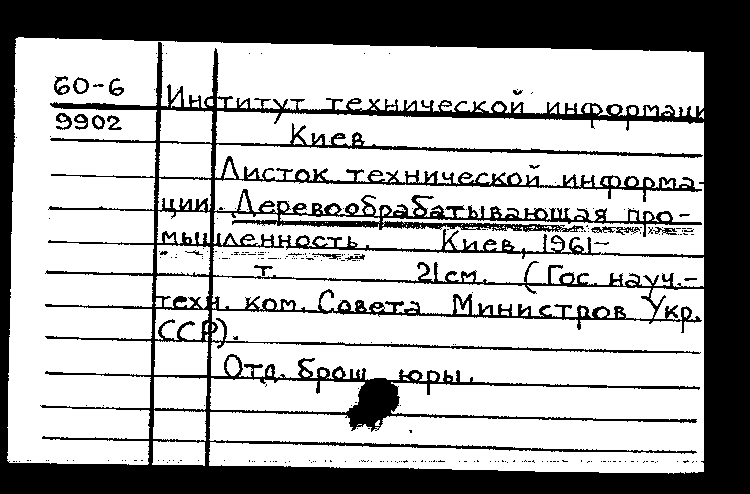 60-6
9902
Институт технической информаци
Киев.
Листок технической информа-
ции. Деревообрабатывающая про-
мышленность. Киев, 1961-
т. 21см. (Гос. науч.-
техн. ком. Совета Министров Укр.
ССР).
Отд. брош юры.